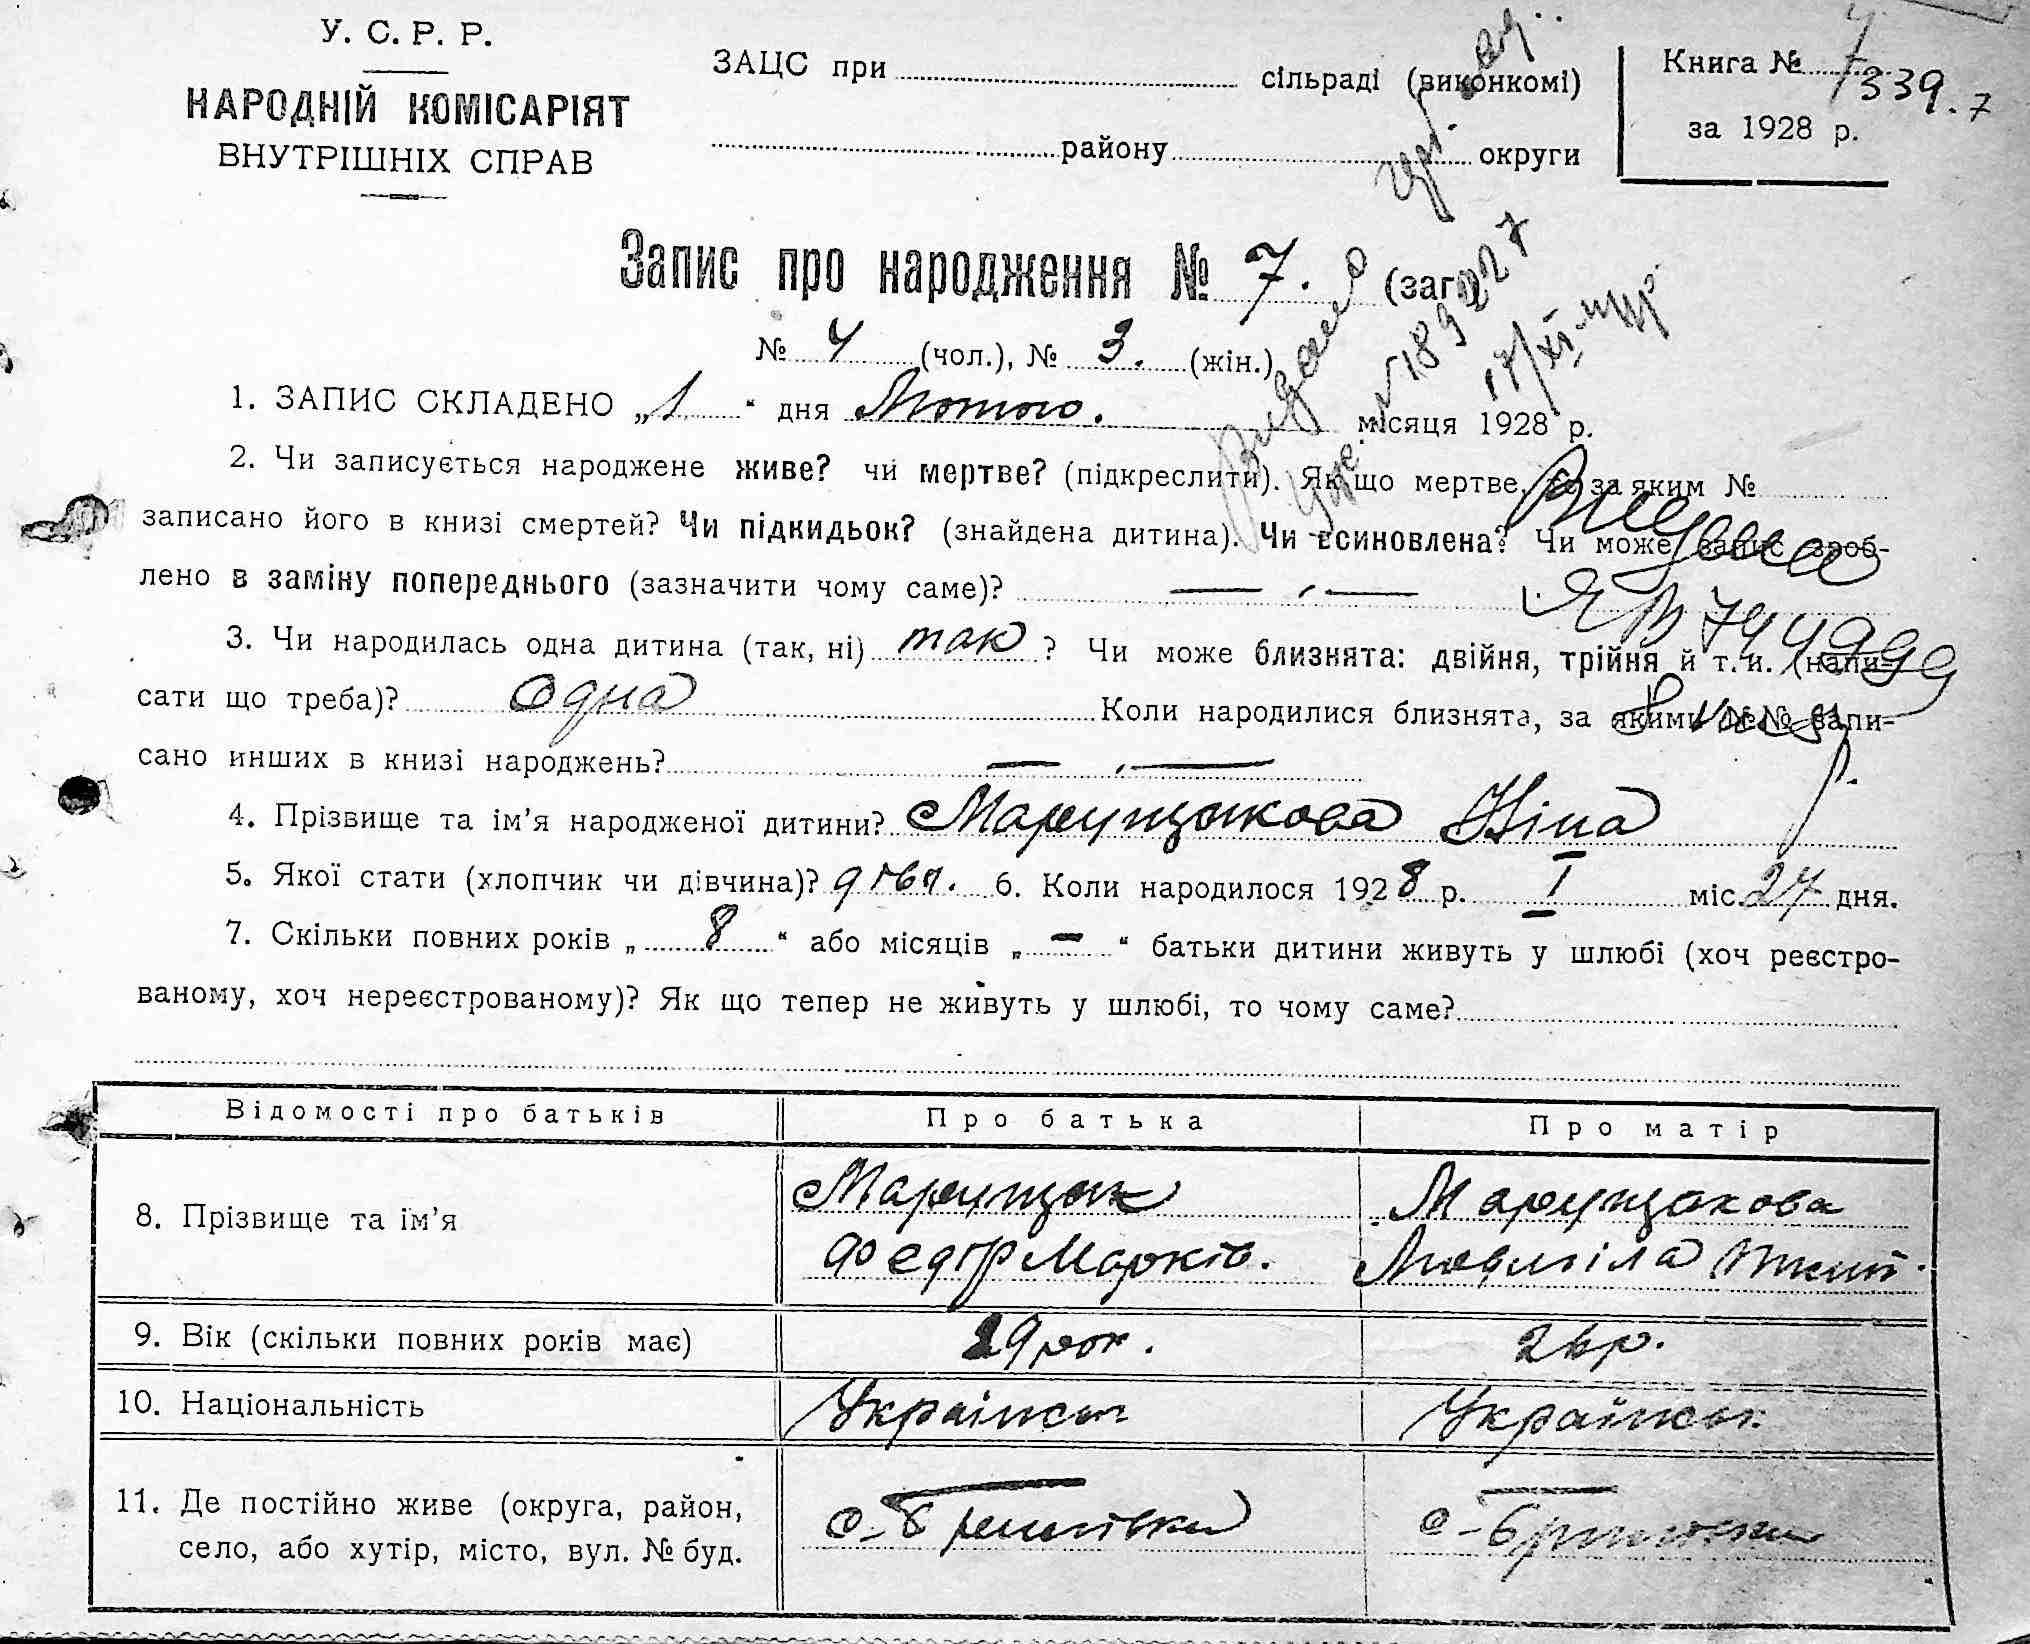 У. С. Р. Р.
НАРОДНІЙ КОМІСАРІЯТ
ВНУТРІШНІХ СПРАВ
ЗАЦС при сільраді (виконкомі)
району округи
Книга № 7
339.7
за 1928 р.
Запис про народження № 7. (заг.)
№ 4 (чол.), № 3. (жін.)
1. ЗАПИС СКЛАДЕНО „1“ дня Лютого. місяця 1928 р.
2. Чи записується народжене живе? чи мертве? (підкреслити). Як що мертве, то за яким №
записано його в книзі смертей? Чи підкидьок? (знайдена дитина). Чи всиновлена? Чи може запис зроб-
лено в заміну попереднього (зазначити чому саме)? — „ —
3. Чи народилась одна дитина (так, ні) так ? Чи може близнята: двійня, трійня й т. и. (напи-
сати що треба)? одна Коли народилися близнята, за якими №№ запи-
сано инших в книзі народжень? — „ —
4. Прізвище та ім’я народженої дитини? Марущакова Ніна
5. Якої стати (хлопчик чи дівчина)? дівч. 6. Коли народилося 1928 р. I міс. 27 дня.
7. Скільки повних років „ 8 “ або місяців „ — “ батьки дитини живуть у шлюбі (хоч реєстро-
ваному, хоч нереєстрованому)? Як що тепер не живуть у шлюбі, то чому саме?
Відомості про батьків Про батька Про матір
8. Прізвище та ім’я Марущак Марущакова
Федір Марків. Людміла
9. Вік (скільки повних років має) 29 рок. 26 р.
10. Національність Українськ Українськ
11. Де постійно живе (округа, район,
село, або хутір, місто, вул. № буд.